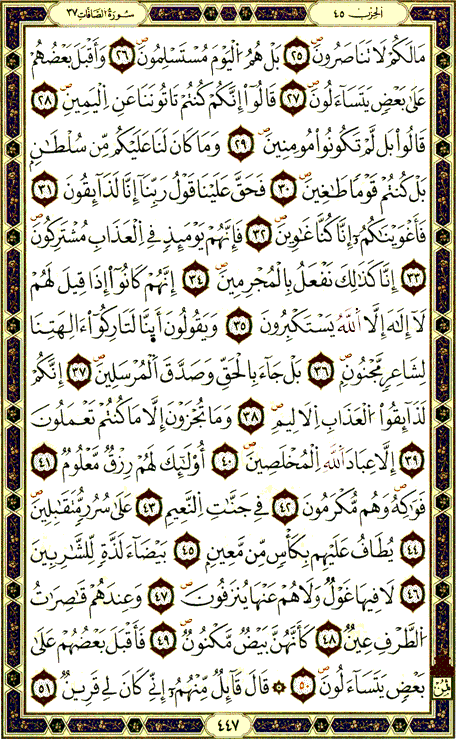 الحزب ٤٥
سورة الصافات ٣٧
مَا لَكُمْ لَا تَنَاصَرُونَ ٢٥ بَلْ هُمُ اُلْيَوْمَ مُسْتَسْلِمُونَ ٢٦ وَأَقْبَلَ بَعْضُهُمْ
عَلَىٰ بَعْضٍ يَتَسَآءَلُونَ ٢٧ قَالُوٓاْ إِنَّكُمْ كُنتُمْ تَاتُونَنَا عَنِ اِلْيَمِينِ ٢٨
قَالُواْ بَل لَّمْ تَكُونُواْ مُومِنِينَ ٢٩ وَمَا كَانَ لَنَا عَلَيْكُم مِّن سُلْطَٰنٍ
بَلْ كُنتُمْ قَوْماً طَٰغِينَ ٣٠ فَحَقَّ عَلَيْنَا قَوْلُ رَبِّنَآ إِنَّا لَذَآئِقُونَ ٣١
فَأَغْوَيْنَٰكُمُۥٓ إِنَّا كُنَّا غَٰوِينَ ٣٢ فَإِنَّهُمْ يَوْمَئِذٍ فِي اِلْعَذَابِ مُشْتَرِكُونَ
٣٣ إِنَّا كَذَٰلِكَ نَفْعَلُ بِالْمُجْرِمِينَ ٣٤ إِنَّهُمْ كَانُوٓاْ إِذَا قِيلَ لَهُمْ
لَآ إِلَٰهَ إِلَّا اَللَّهُ يَسْتَكْبِرُونَ ٣٥ وَيَقُولُونَ أَئِنَّا لَتَارِكُوٓاْ ءَالِهَتِنَا
لِشَاعِرٍ مَّجْنُونٍ ٣٦ بَلْ جَآءَ بِالْحَقِّ وَصَدَّقَ اَلْمُرْسَلِينَ ٣٧ إِنَّكُمْ
لَذَآئِقُواْ اُلْعَذَابِ اِلْأَلِيمِ ٣٨ وَمَا تُجْزَوْنَ إِلَّا مَا كُنتُمْ تَعْمَلُونَ
٣٩ إِلَّا عِبَادَ اَللَّهِ اِلْمُخْلَصِينَ ٤٠ أُوْلَٰٓئِكَ لَهُمْ رِزْقٌ مَّعْلُومٌ ٤١
فَوَٰكِهُ وَهُم مُّكْرَمُونَ ٤٢ فِي جَنَّٰتِ اِلنَّعِيمِ ٤٣ عَلَىٰ سُرُرٍ مُّتَقَٰبِلِينَ
٤٤ يُطَافُ عَلَيْهِم بِكَأْسٍ مِّن مَّعِينٍ ٤٥ بَيْضَآءَ لَذَّةٍ لِّلشَّٰرِبِينَ
٤٦ لَا فِيهَا غَوْلٌ وَلَا هُمْ عَنْهَا يُنزَفُونَ ٤٧ وَعِندَهُمْ قَٰصِرَٰتُ
اُلطَّرْفِ عِينٌ ٤٨ كَأَنَّهُنَّ بَيْضٌ مَّكْنُونٌ ٤٩ فَأَقْبَلَ بَعْضُهُمْ عَلَىٰ
بَعْضٍ يَتَسَآءَلُونَ ٥٠ ۞ قَالَ قَآئِلٌ مِّنْهُمُۥٓ إِنِّي كَانَ لِي قَرِينٌ ٥١
ثمن
٤٤٧